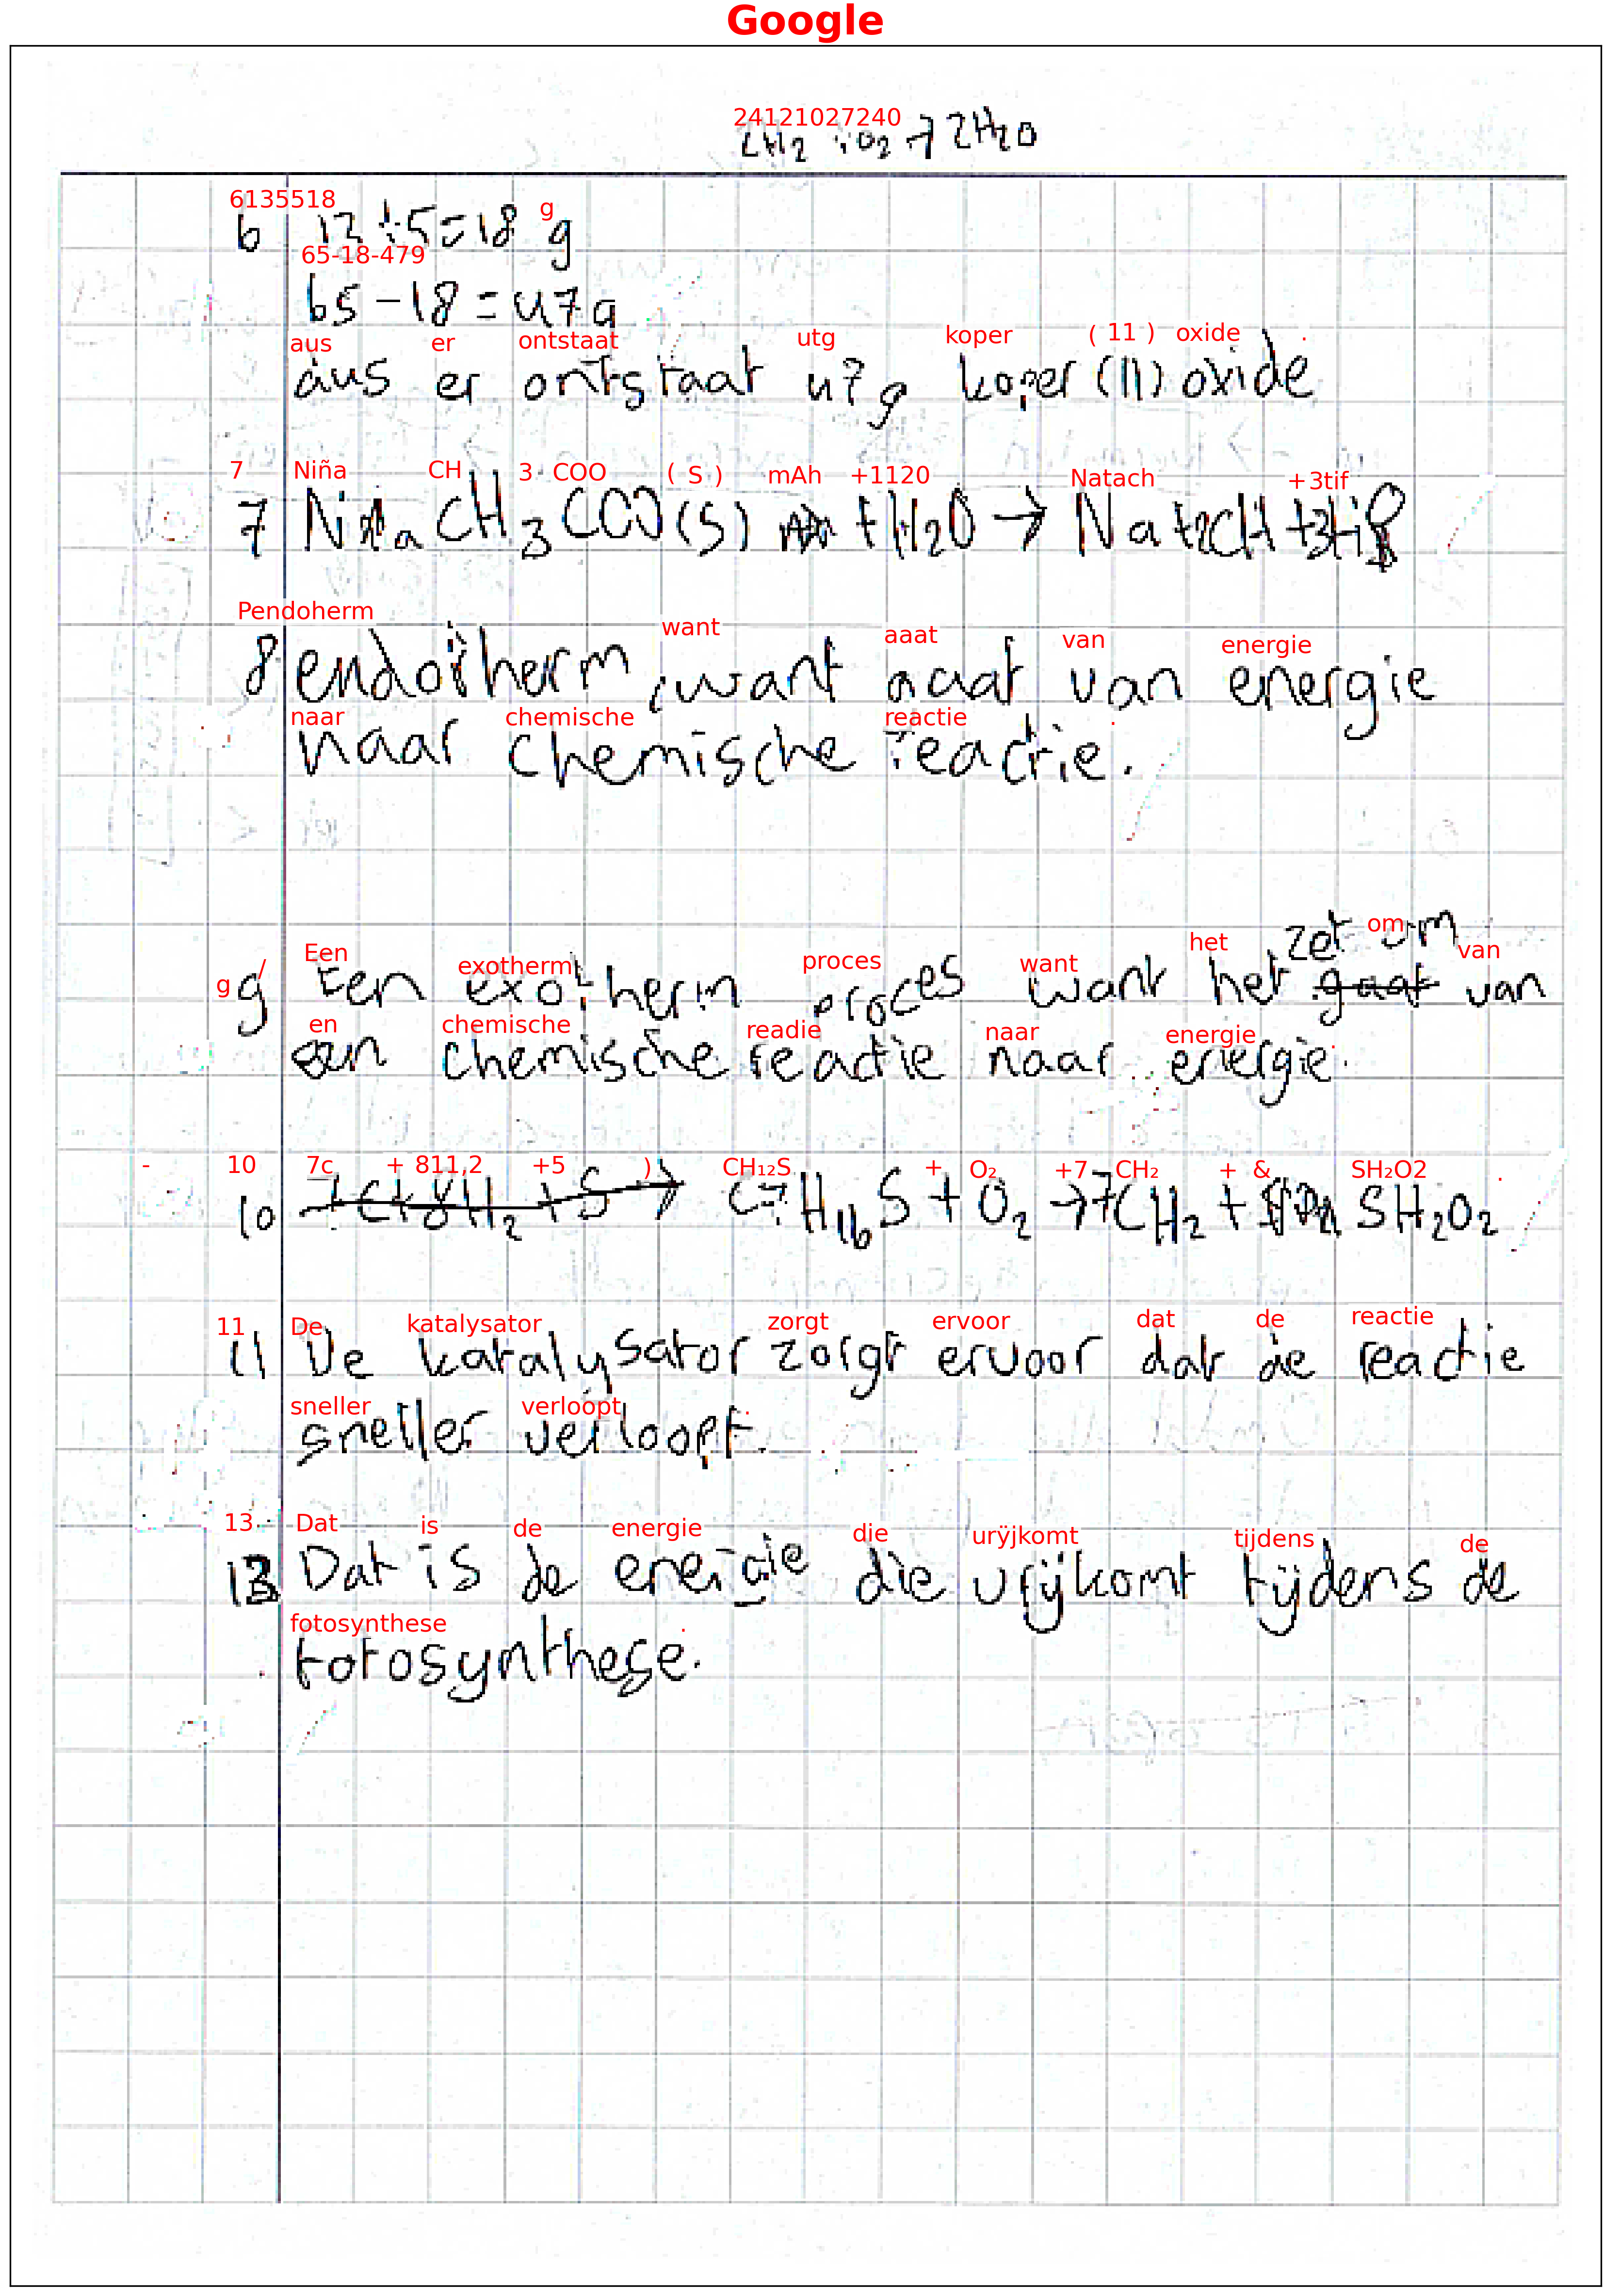 Google
24121027240
2H2 + O2 → 2H2O
6135518 g
6 12 + 5 = 18 g
65-18-479
65 - 18 = 47g
aus er ontstaat utg koper ( 11 ) oxide .
dus er ontstaat 47g koper (II) oxide
7 Niña CH 3 COO ( S ) mAh +1120 Natach +3tif
7 Na CH3COO(s) + H2O → Na + 2CH + 3H
Pendoherm want aaat van energie
8 endotherm, want gaat van energie
naar chemische reactie .
naar chemische reactie.
zet om
g / Een exotherm proces want het om van
9 Een exotherm proces want het gaat van
en chemische readie naar energie .
een chemische reactie naar energie.
- 10 7c + 811,2 +5 ) CH₁₂S + O₂ +7 CH₂ + & SH₂O2 .
10 7C+8H2+S → C7H16S + O2 → 7CH2 + SH2O2
11 De katalysator zorgt ervoor dat de reactie
11 De katalysator zorgt ervoor dat de reactie
sneller verloopt .
sneller verloopt.
13. Dat is de energie die urÿjkomt tijdens de
13 Dat is de energie die vrijkomt tijdens de
fotosynthese .
fotosynthese.